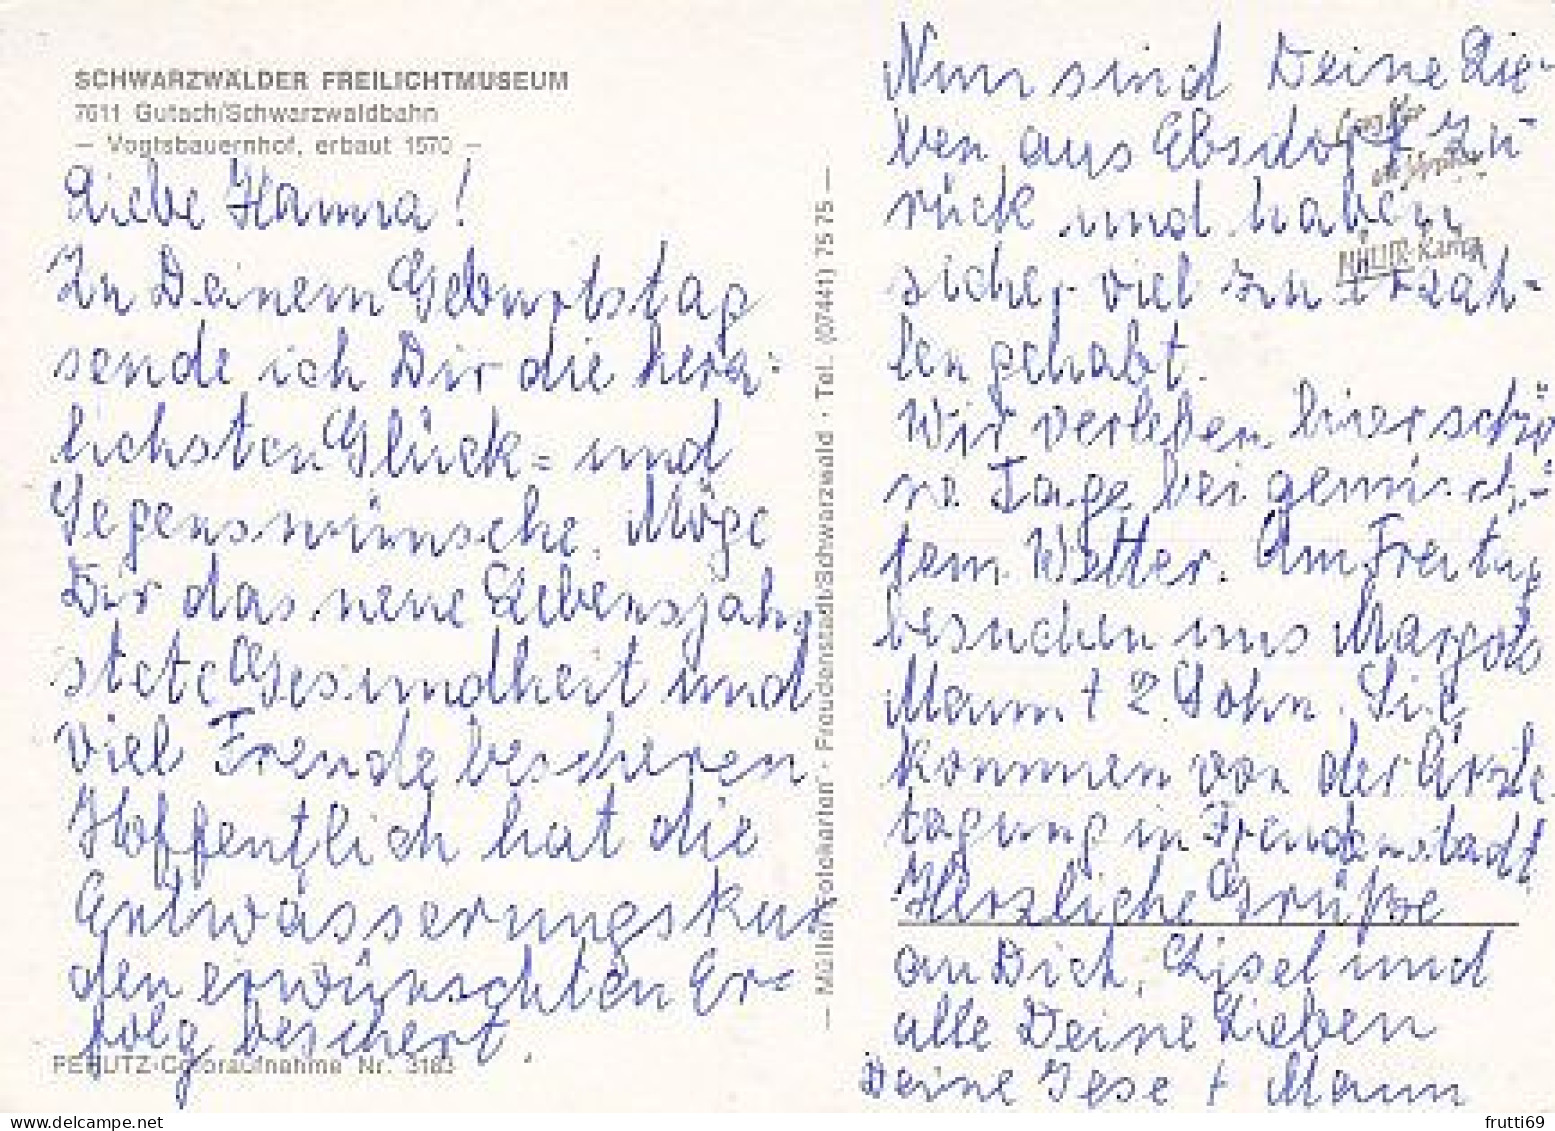 SCHWARZWÄLDER FREILICHTMUSEUM
7611 Gutach/Schwarzwaldbahn
– Vogtsbauernhof, erbaut 1570 –
Liebe Hanna!
Zu Deinem Geburtstag
sende ich Dir die herz=
lichsten Glück= und
Segenswünsche. Möge
Dir das neue Lebensjahr
stete Gesundheit und
viel Freude bescheren.
Hoffentlich hat die
Entwässerungskur
den erwünschten Er=
folg beschert.
PERUTZ-Coloraufnahme Nr. 3183
– Müller Fotokarten · Freudenstadt/Schwarzwald · Tel. (07441) 75 75 –
Nun sind Deine Lie-
ben aus Ebsdorf zu-
rück und haben
sicher viel zu erzäh-
len gehabt.
Wir verleben hier schö
ne Tage bei gemisch-
tem Wetter. Am Freitag
besuchen uns Margots
Mann + 2. Sohn. Sie
kommen von der Ärzte
tagung in Freudenstadt.
Herzliche Grüße
an Dich, Lisel und
alle Deine Lieben
Deine + Mann
frutti69